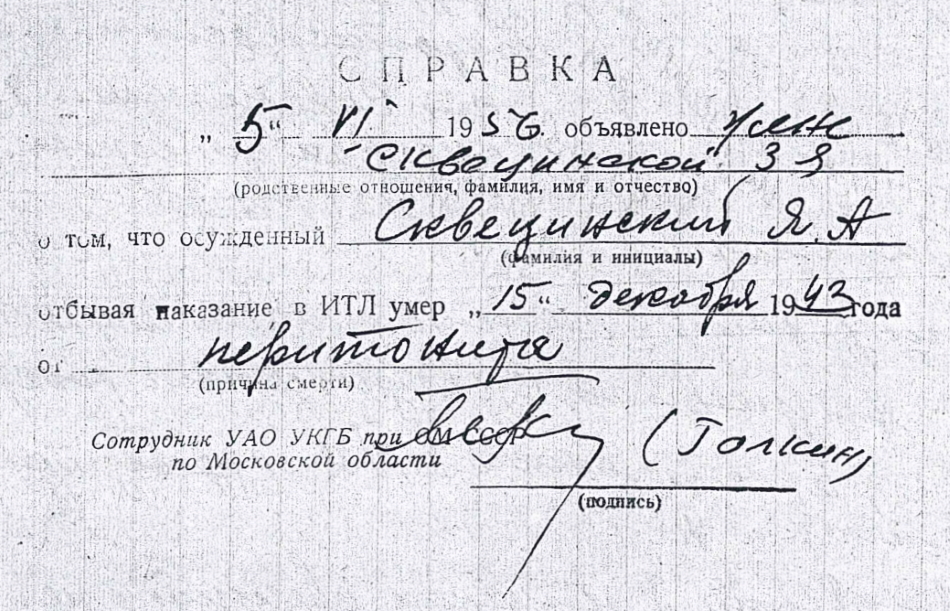 СПРАВКА
„ 5 “ VI 1956. объявлено
Сквецинской З Я
(родственные отношения, фамилия, имя и отчество)
о том, что осужденный Сквецинский Я. А
(фамилия и инициалы)
отбывая наказание в ИТЛ умер „ 15 “ декабря 1943 года
от перитонита
(причина смерти)
Сотрудник УАО УКГБ при СМ СССР (Голкин)
по Московской области
(подпись)